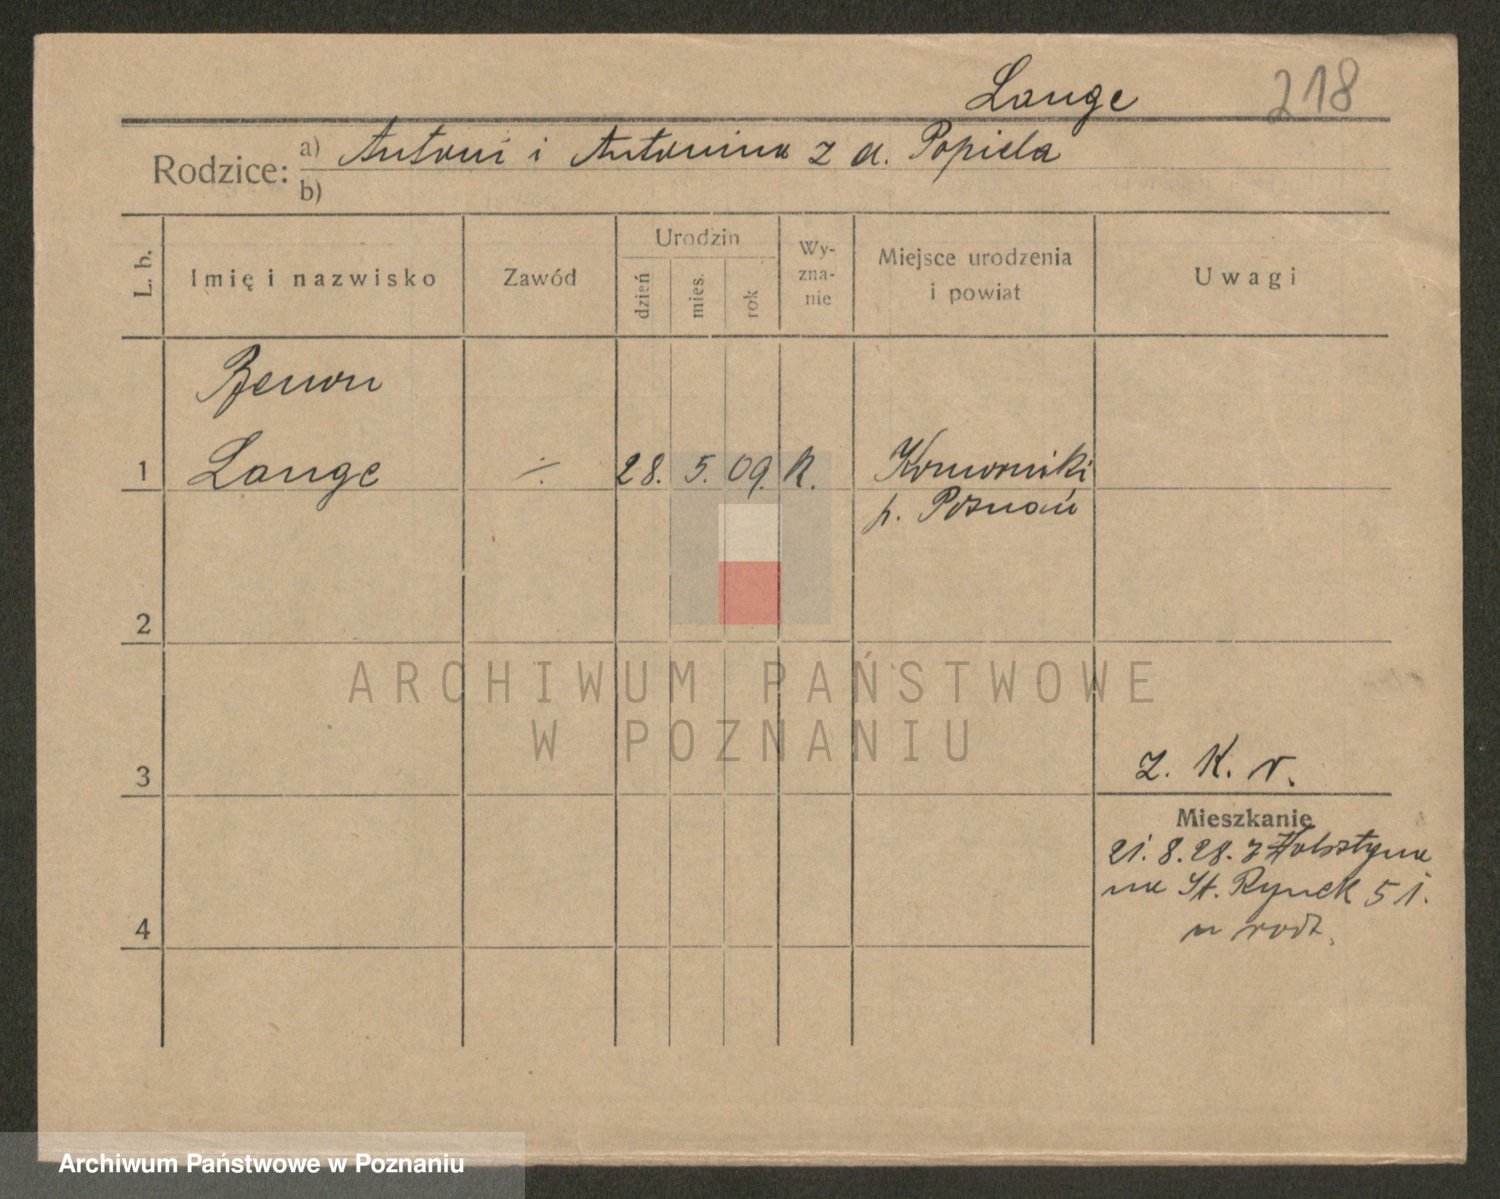 Lange 218
Rodzice: a) Antoni i Antonina z d. Popiela
b)
L. b. Imię i nazwisko Zawód Urodzin dzień mies. rok Wy-zna-nie Miejsce urodzenia i powiat Uwagi
Benon
1 Lange ÷ 28. 5. 09. R. Komorniki
p. Poznań
2
ARCHIWUM PAŃSTWOWE
W POZNANIU
3 z. K. r.
Mieszkanie
21. 8. 28. z Wolsztyna
na St. Rynek 51.
u rodz.
4
Archiwum Państwowe w Poznaniu